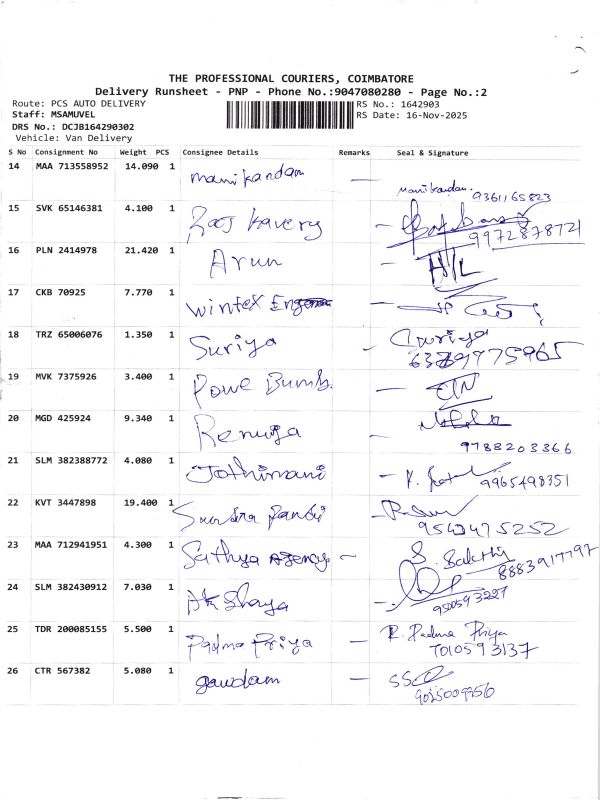 THE PROFESSIONAL COURIERS, COIMBATORE
Delivery Runsheet - PNP - Phone No.:9047080280 - Page No.:2
Route: PCS AUTO DELIVERY
RS No.: 1642903
Staff: MSAMUVEL
RS Date: 16-Nov-2025
DRS No.: DCJB164290302
Vehicle: Van Delivery
S No Consignment No Weight PCS Consignee Details Remarks Seal & Signature
14 MAA 713558952 14.090 1 manikandam — manikandan
9361165823
15 SVK 65146381 4.100 1 Raaj Kavery —
9972878721
16 PLN 2414978 21.420 1 Arun — H/L
17 CKB 70925 7.770 1 Wintex —
18 TRZ 65006076 1.350 1 Suriya — Suriya
6379975965
19 MVK 7375926 3.400 1 Powe Bumb. —
20 MGD 425924 9.340 1 Renuga —
9788203366
21 SLM 382388772 4.080 1 Jothimani —
9965498351
22 KVT 3447898 19.400 1 Pandi —
9543475252
23 MAA 712941951 4.300 1 Sathya Agency — S. Sakthi
8883917797
24 SLM 382430912 7.030 1 Akshaya —
25 TDR 200085155 5.500 1 Padma Priya — R. Padma Priya
7010593137
26 CTR 567382 5.080 1 gaudam —
9025009956